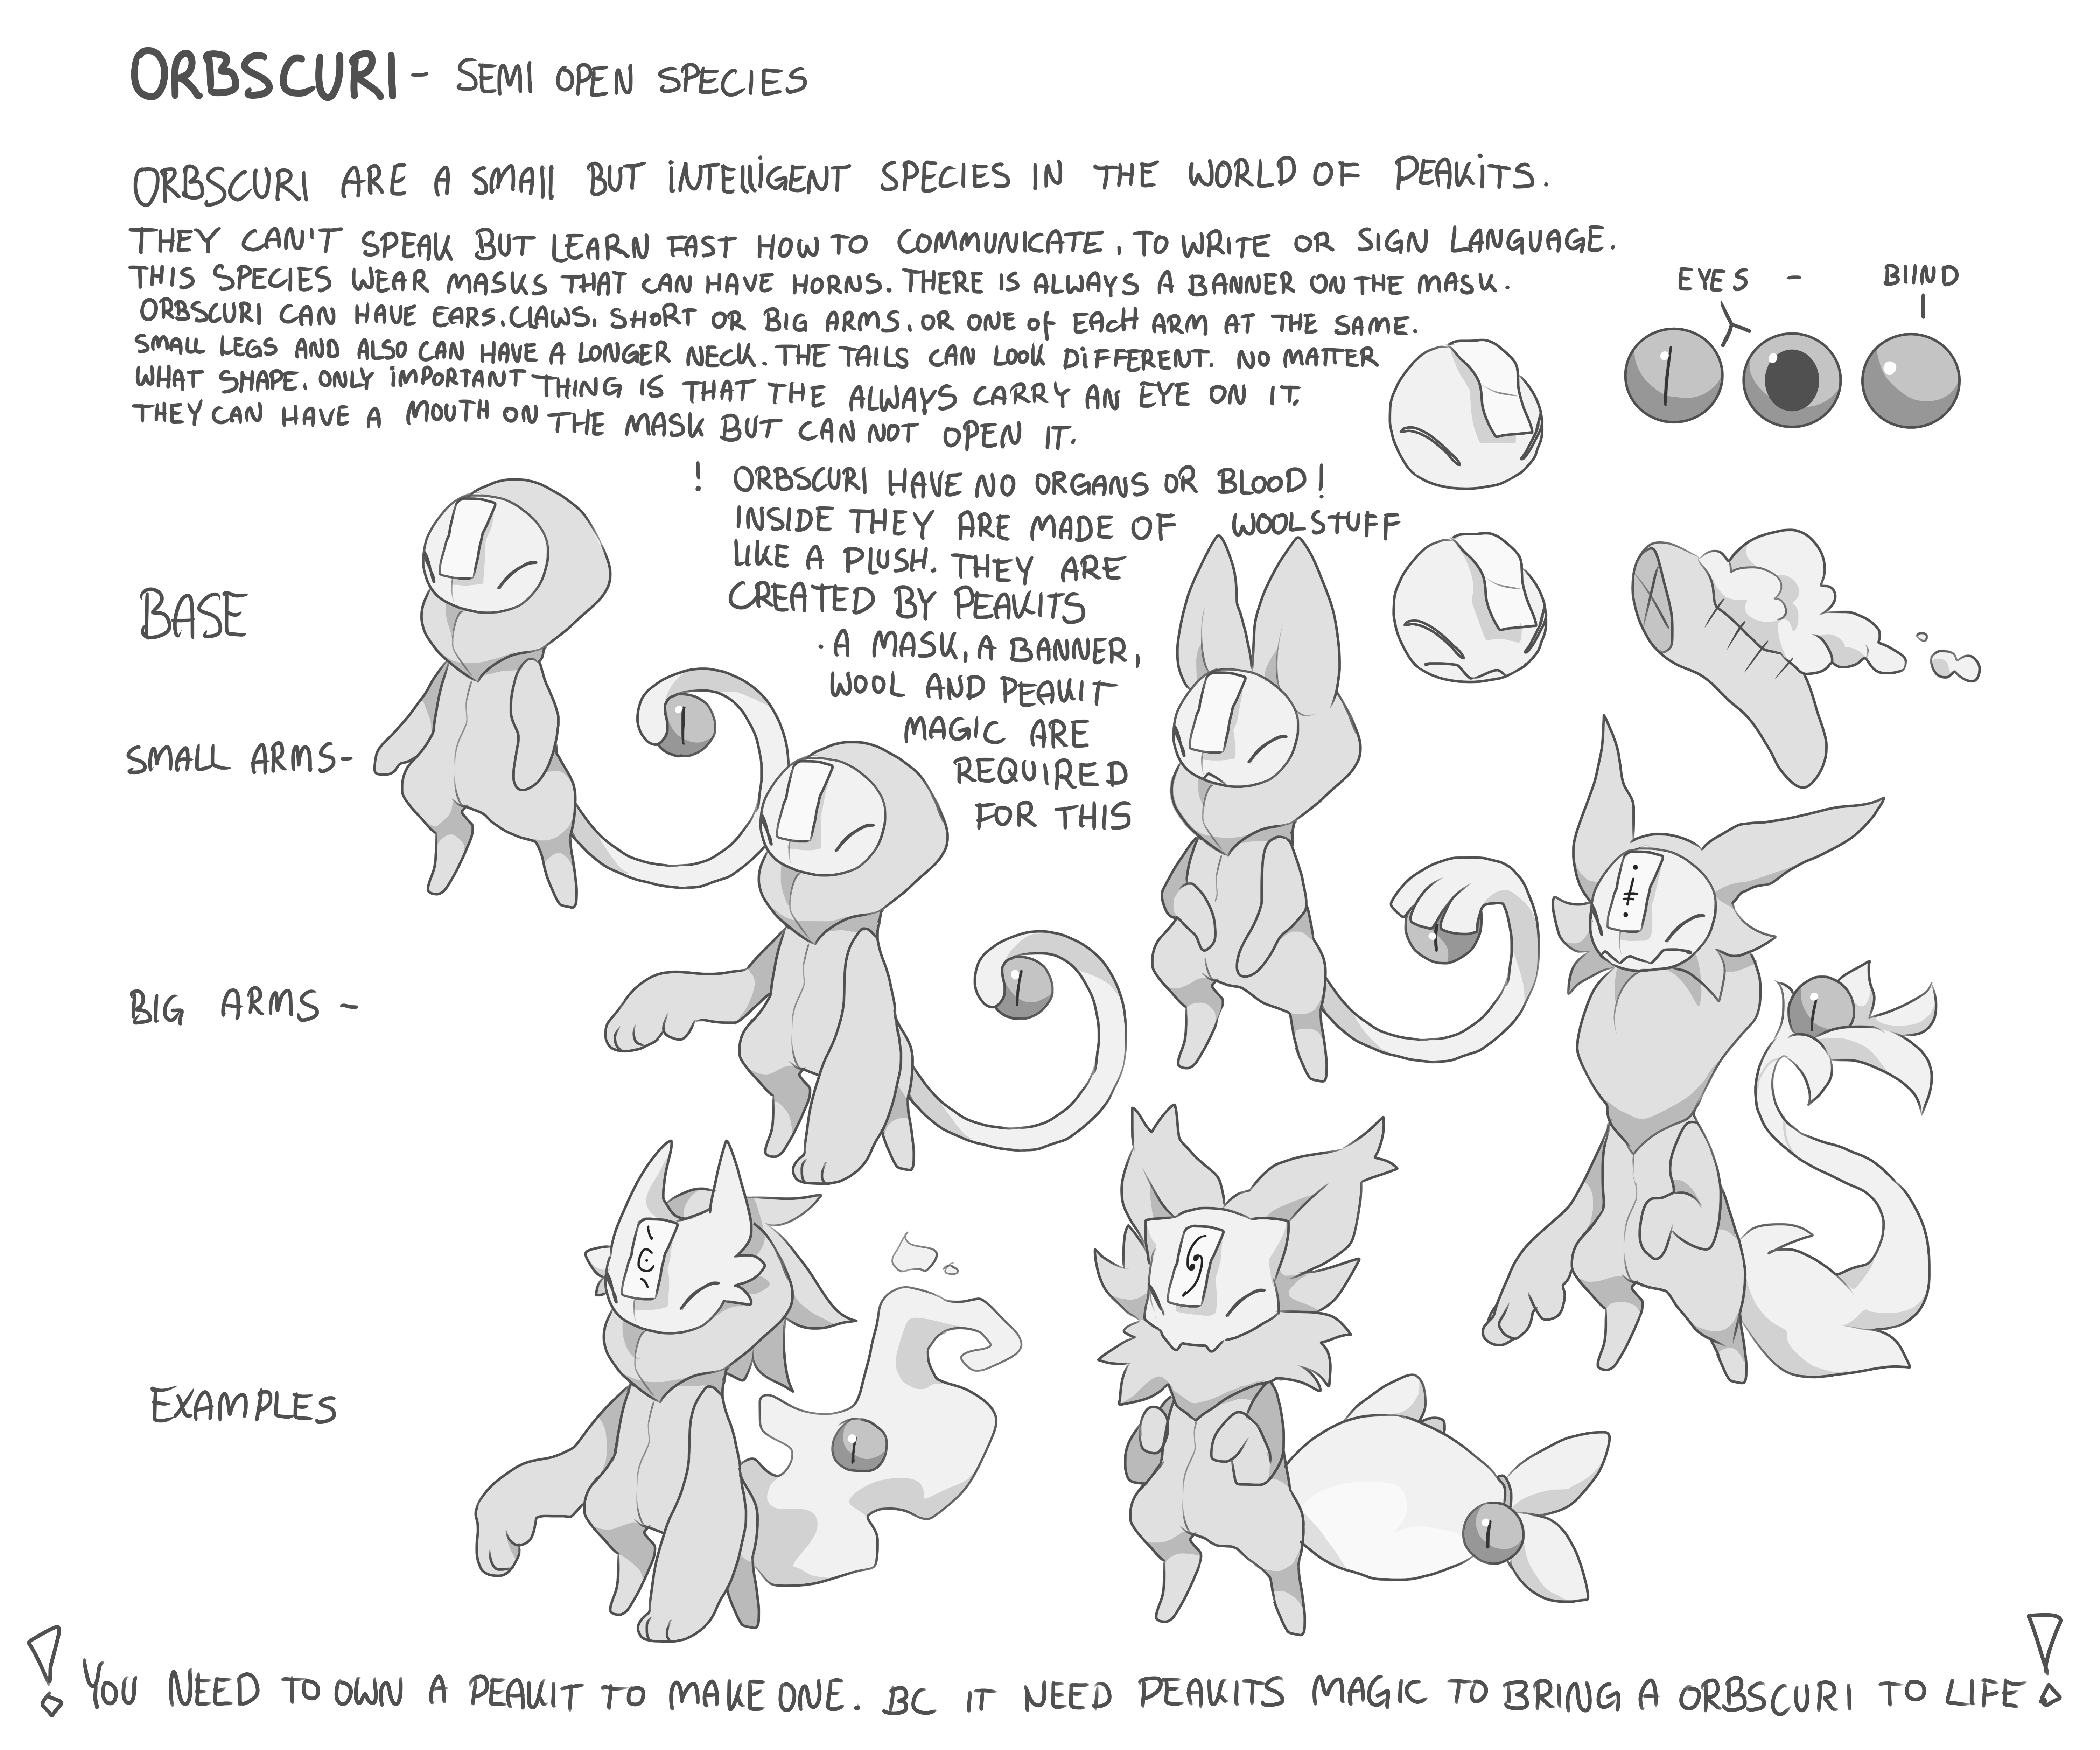 ORBSCURI - SEMI OPEN SPECIES
ORBSCURI ARE A SMALL BUT INTELLIGENT SPECIES IN THE WORLD OF PEAKITS.
THEY CAN'T SPEAK BUT LEARN FAST HOW TO COMMUNICATE, TO WRITE OR SIGN LANGUAGE.
THIS SPECIES WEAR MASKS THAT CAN HAVE HORNS. THERE IS ALWAYS A BANNER ON THE MASK.
ORBSCURI CAN HAVE EARS, CLAWS, SHORT OR BIG ARMS, OR ONE OF EACH ARM AT THE SAME.
SMALL LEGS AND ALSO CAN HAVE A LONGER NECK. THE TAILS CAN LOOK DIFFERENT. NO MATTER
WHAT SHAPE, ONLY IMPORTANT THING IS THAT THE ALWAYS CARRY AN EYE ON IT.
THEY CAN HAVE A MOUTH ON THE MASK BUT CAN NOT OPEN IT.
EYES - BLIND
! ORBSCURI HAVE NO ORGANS OR BLOOD!
INSIDE THEY ARE MADE OF WOOLSTUFF
LIKE A PLUSH. THEY ARE
CREATED BY PEAKITS
· A MASK, A BANNER,
WOOL AND PEAKIT
MAGIC ARE
REQUIRED
FOR THIS
BASE
SMALL ARMS-
BIG ARMS -
EXAMPLES
! YOU NEED TO OWN A PEAKIT TO MAKE ONE. BC IT NEED PEAKITS MAGIC TO BRING A ORBSCURI TO LIFE !